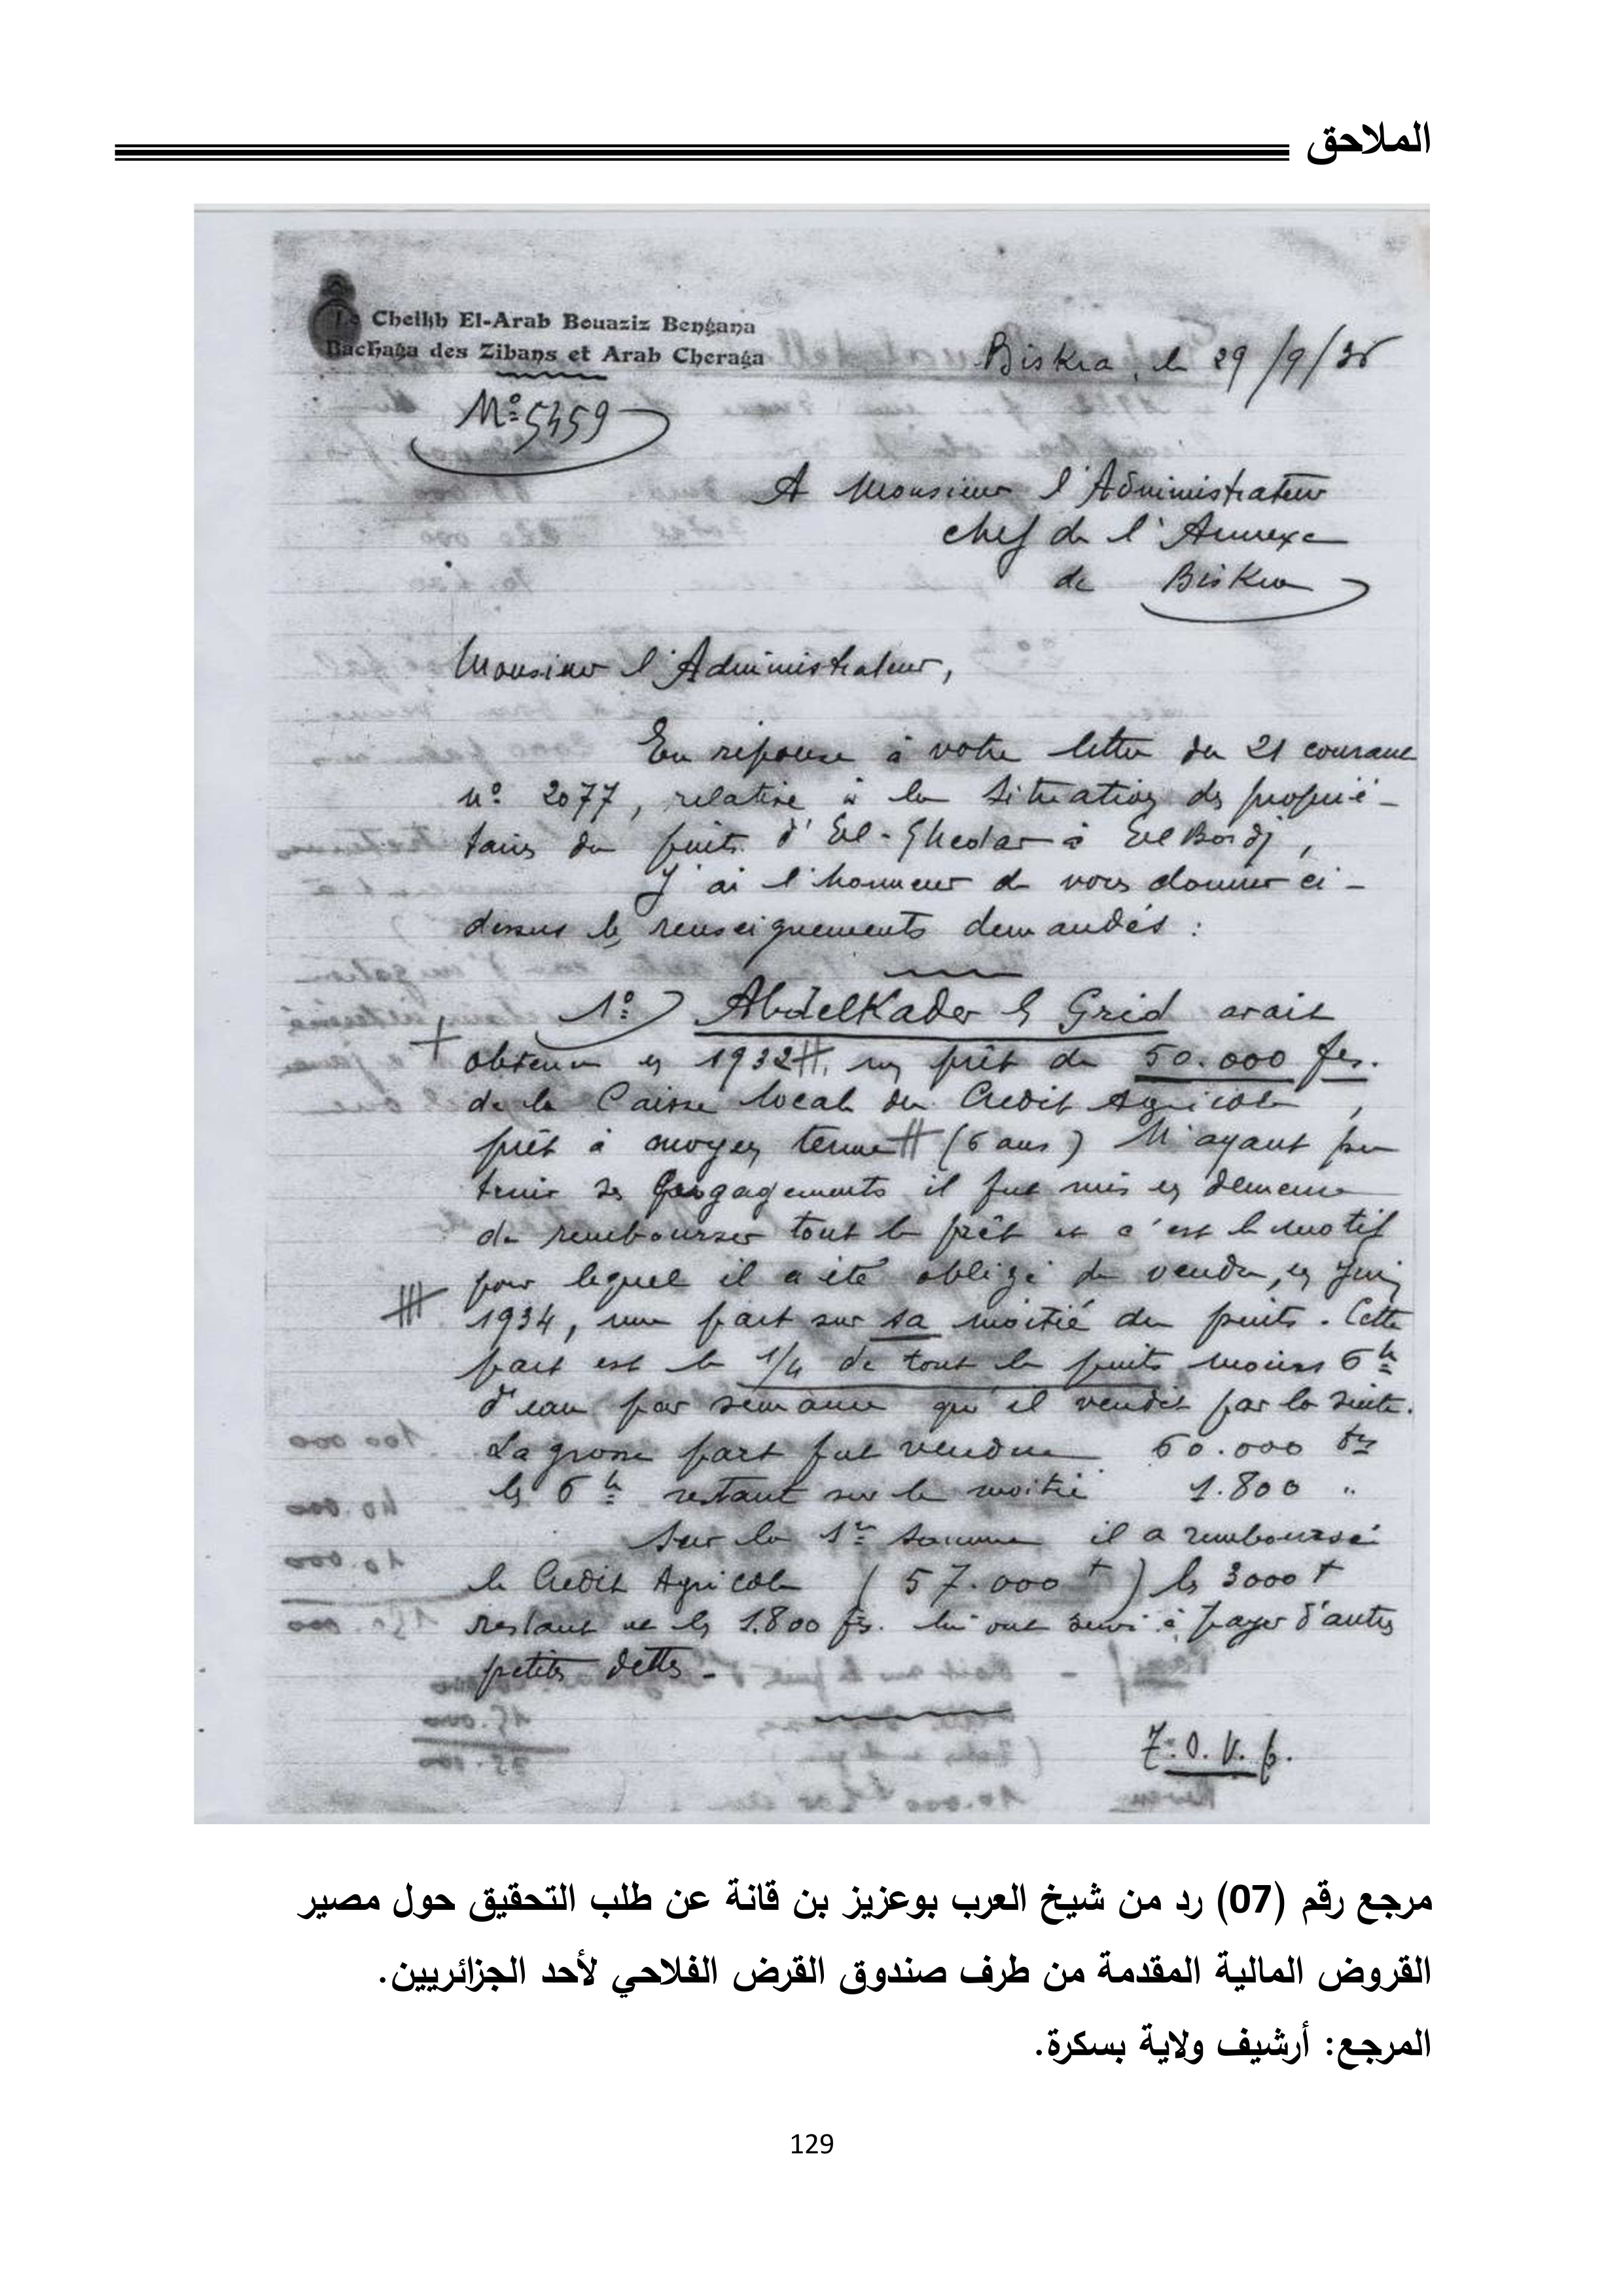 الملاحق
Le Cheikh El-Arab Bouaziz Bengana
Bachaga des Zibans et Arab Cheraga
Biskra, le 29/9/36
N° 5459
A Monsieur l'Administrateur
chef de l'Annexe
de Biskra
Monsieur l'Administrateur,
En réponse à votre lettre du 21 courant
n° 2077, relative à la situation des proprié-
taires du puits d'El-Ghedar à El Bordj,
J'ai l'honneur de vous donner ci-
dessus les renseignements demandés :
1°) AbdelKader Grid avait
obtenu en 1932, un prêt de 50.000 frs.
de la Caisse locale du Crédit Agricole,
prêt à moyen terme (6 ans) N'ayant pu
tenir ses engagements il fut mis en demeure
de rembourser tout le prêt et c'est le motif
pour lequel il a été obligé de vendre, en Juin
1934, une part sur sa moitié du puits. Cette
part est le 1/4 de tout le puits moins 6 h
d'eau par semaine qu'il vendit par la suite.
La grosse part fut vendue 60.000 frs
les 6 h restant sur la moitié 1.800 "
Sur la 1re somme il a remboursé
le Crédit Agricole (57.000 f) les 3000 f
restant et les 1.800 frs. lui ont servi à payer d'autres
petites dettes.
T.S.V.P.
مرجع رقم (07) رد من شيخ العرب بوعزيز بن قانة عن طلب التحقيق حول مصير
القروض المالية المقدمة من طرف صندوق القرض الفلاحي لأحد الجزائريين.
المرجع: أرشيف ولاية بسكرة.
129